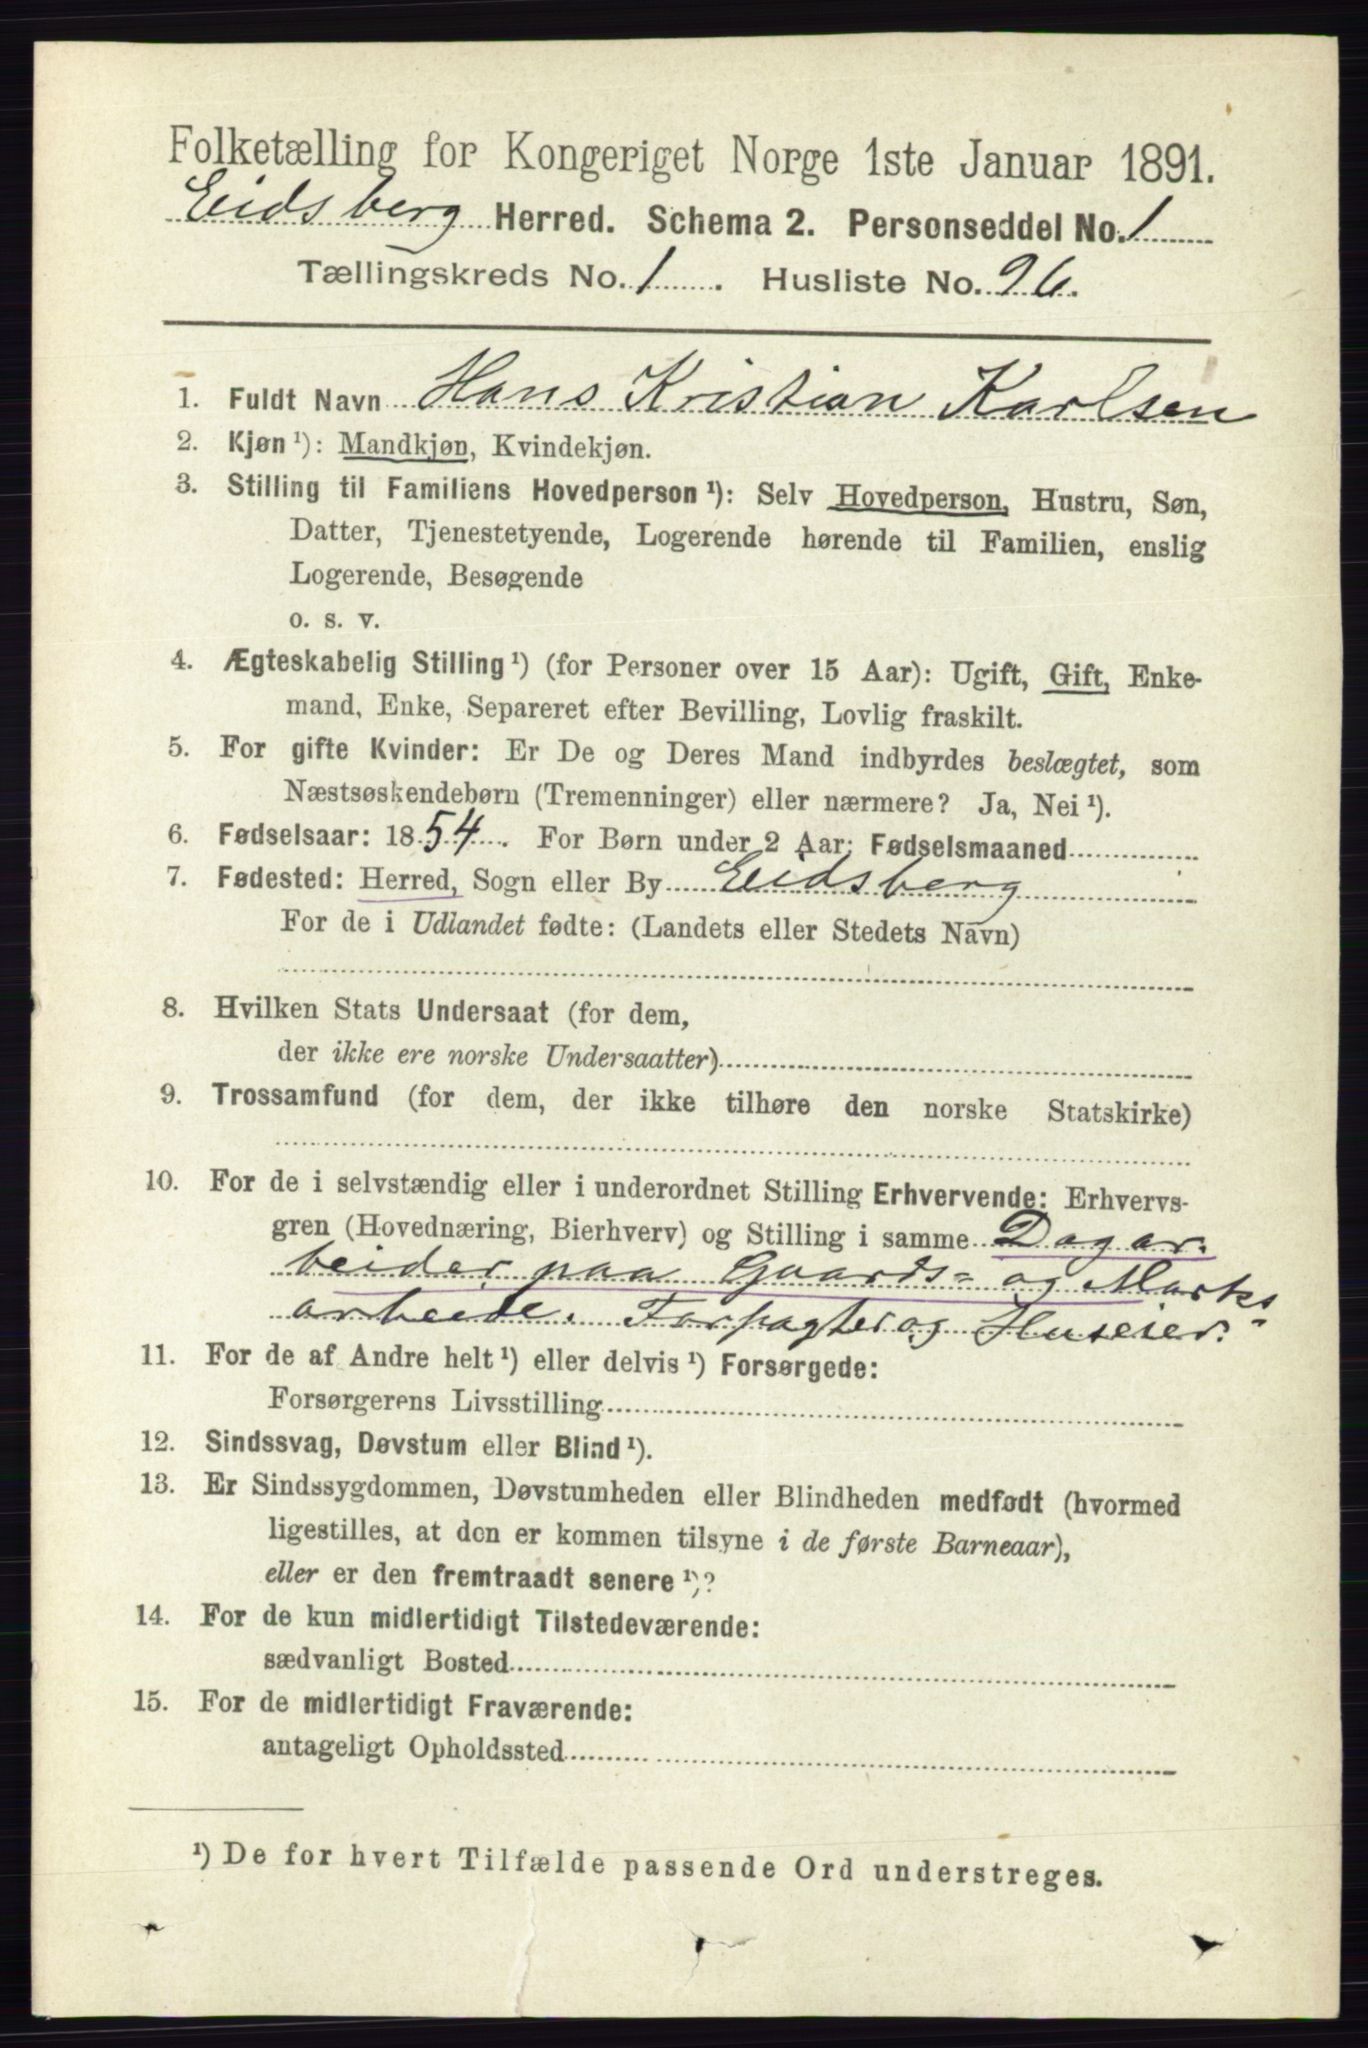 Folketælling for Kongeriget Norge 1ste Januar 1891.
Eidsberg Herred. Schema 2. Personseddel No. 1
Tællingskreds No. 1. Husliste No. 96.
1. Fuldt Navn Hans Kristian Karlsen
2. Kjøn ¹): Mandkjøn, Kvindekjøn.
3. Stilling til Familiens Hovedperson ¹): Selv Hovedperson, Hustru, Søn,
Datter, Tjenestetyende, Logerende hørende til Familien, enslig
Logerende, Besøgende
o. s. v.
4. Ægteskabelig Stilling ¹) (for Personer over 15 Aar): Ugift, Gift, Enke-
mand, Enke, Separeret efter Bevilling, Lovlig fraskilt.
5. For gifte Kvinder: Er De og Deres Mand indbyrdes beslægtet, som
Næstsøskendebørn (Tremenninger) eller nærmere? Ja, Nei ¹).
6. Fødselsaar: 1854. For Børn under 2 Aar: Fødselsmaaned
7. Fødested: Herred, Sogn eller By Eidsberg
For de i Udlandet fødte: (Landets eller Stedets Navn)
8. Hvilken Stats Undersaat (for dem,
der ikke ere norske Undersaatter)
9. Trossamfund (for dem, der ikke tilhøre den norske Statskirke)
10. For de i selvstændig eller i underordnet Stilling Erhvervende: Erhvervs-
gren (Hovednæring, Bierhverv) og Stilling i samme Dagar-
beider paa Gaards- og Marks
arbeide. Forpagter og Huseier.
11. For de af Andre helt ¹) eller delvis ¹) Forsørgede:
Forsørgerens Livsstilling
12. Sindssvag, Døvstum eller Blind ¹).
13. Er Sindssygdommen, Døvstumheden eller Blindheden medfødt (hvormed
ligestilles, at den er kommen tilsyne i de første Barneaar),
eller er den fremtraadt senere ¹)?
14. For de kun midlertidigt Tilstedeværende:
sædvanligt Bosted
15. For de midlertidigt Fraværende:
antageligt Opholdssted
¹) De for hvert Tilfælde passende Ord understreges.